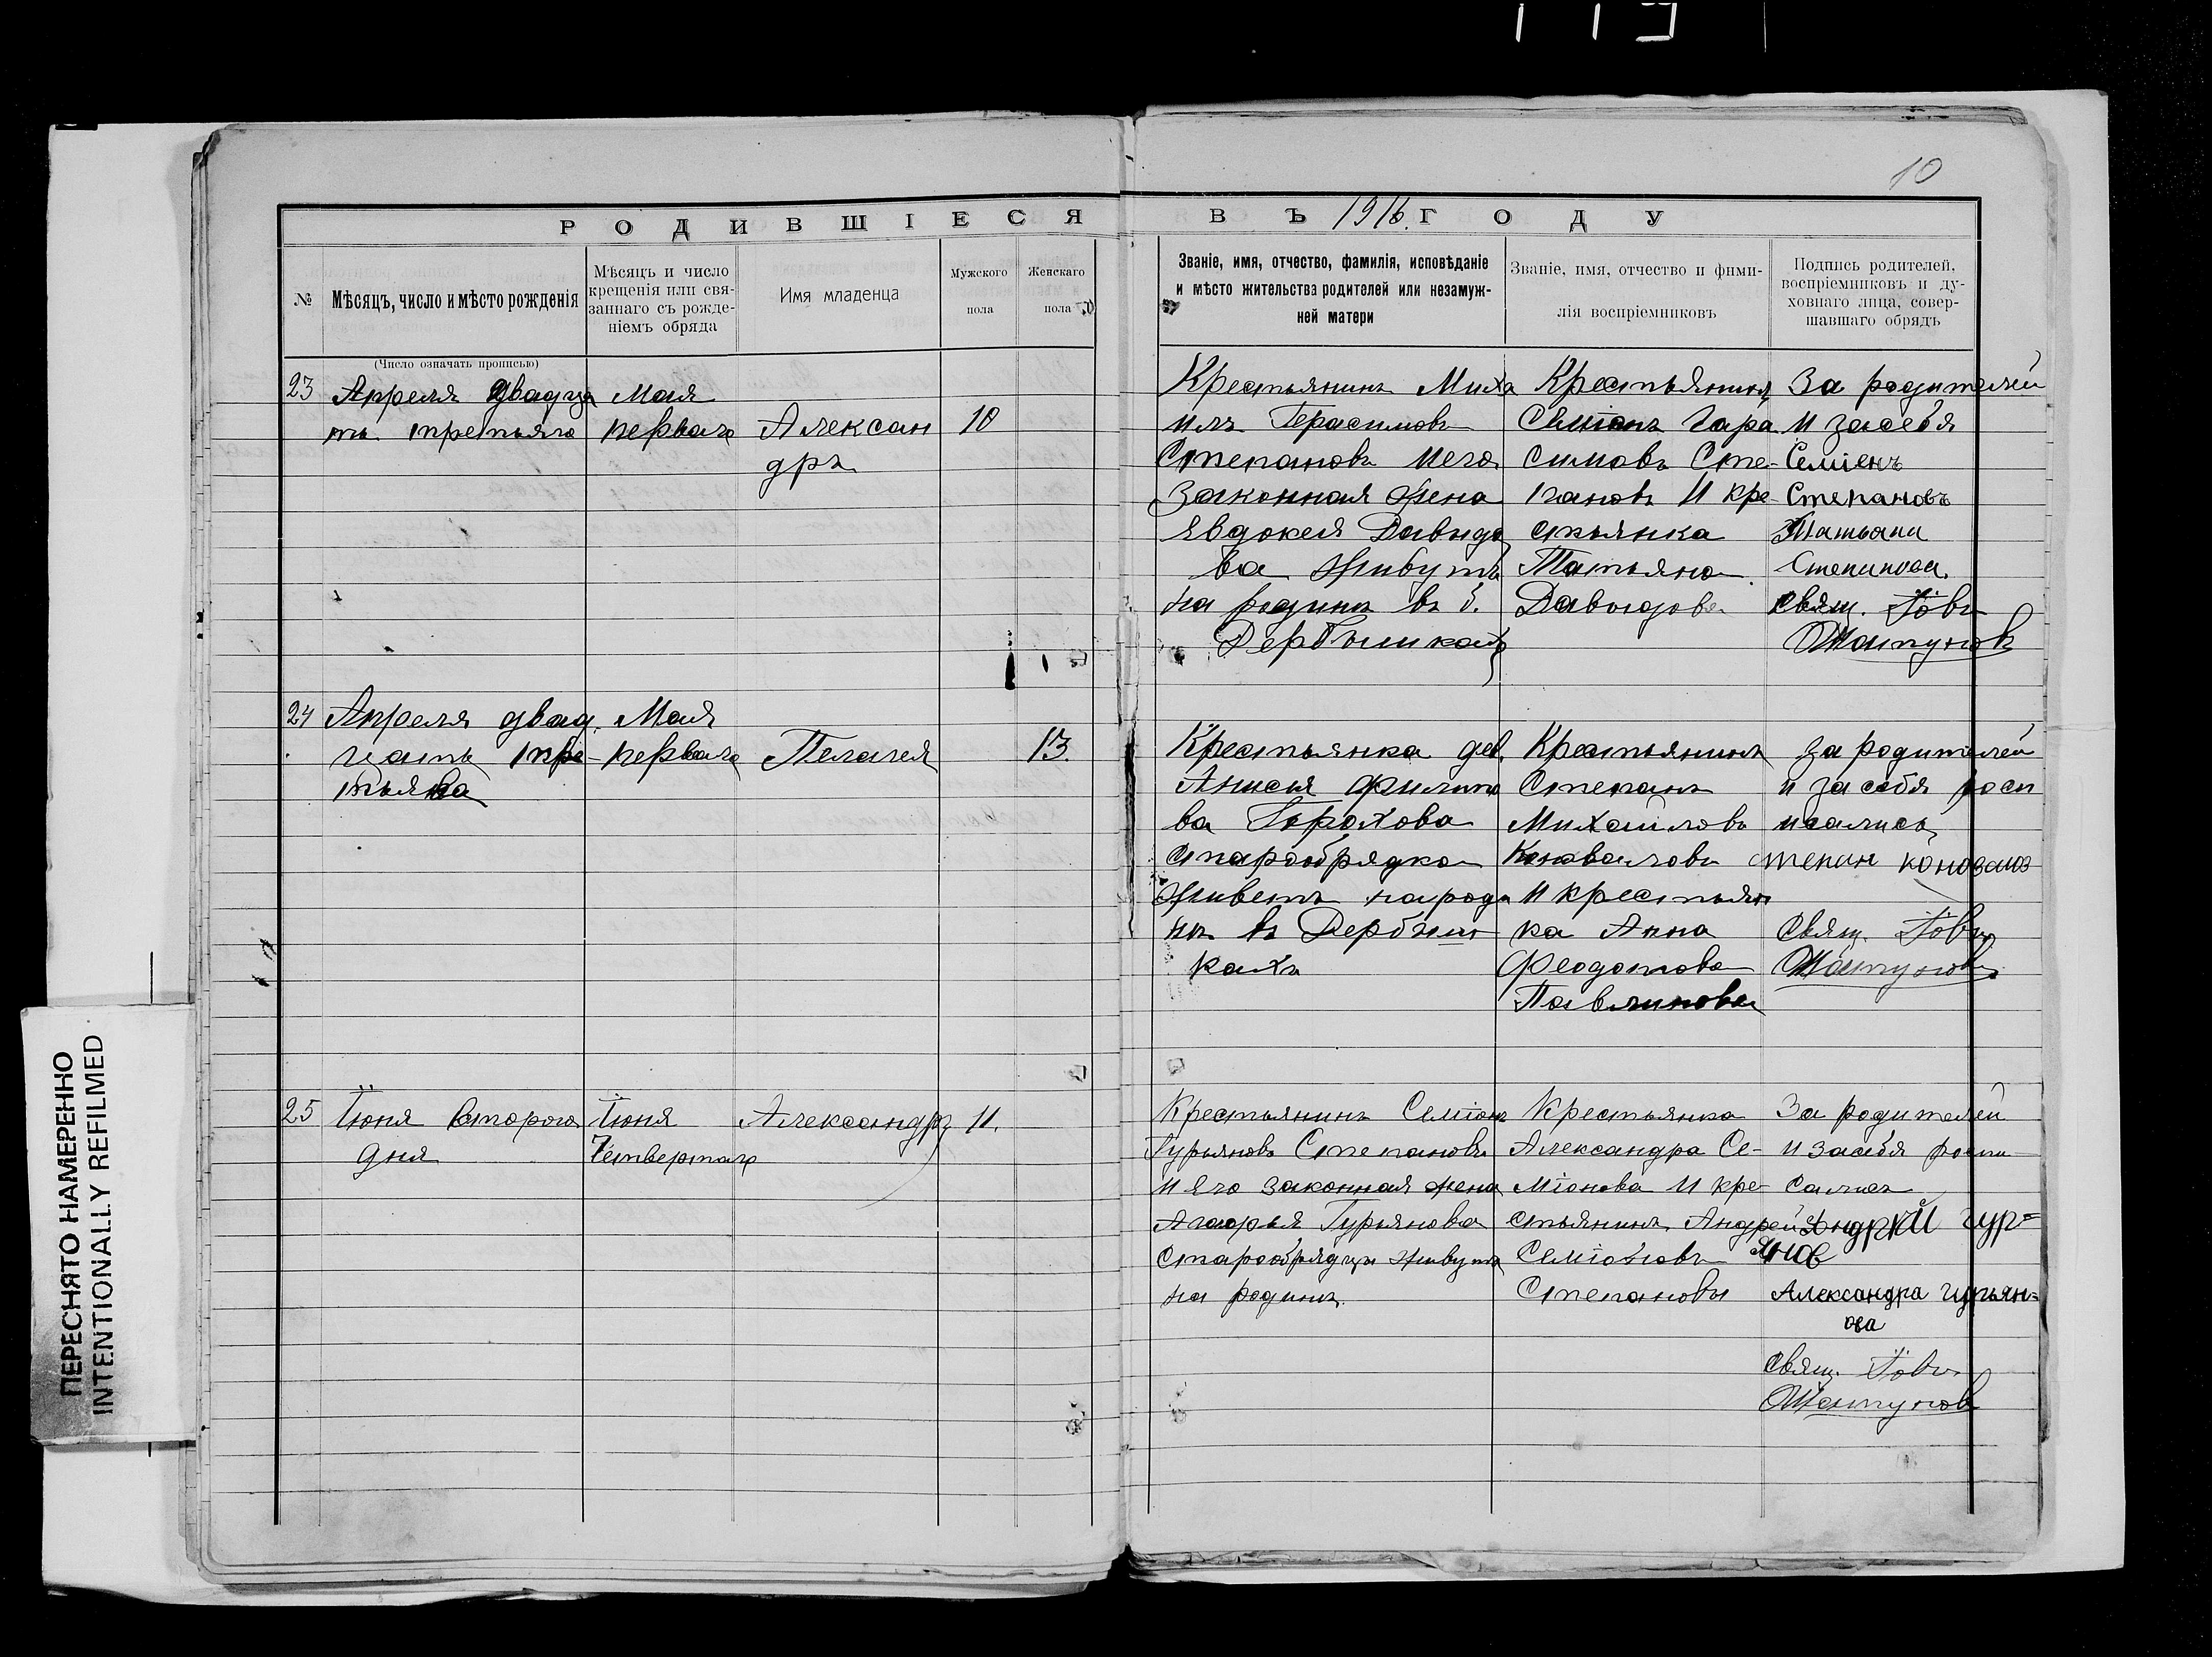 10
РОДИВШІЕСЯ ВЪ 1916. ГОДУ
№
Мѣсяцъ, число и мѣсто рожденія
Мѣсяцъ и число
крещенія или свя-
заннаго съ рожде-
ніемъ обряда
Имя младенца
Мужского
пола
Женскаго
пола
Званіе, имя, отчество, фамилія, исповѣданіе
и мѣсто жительства родителей или незамуж-
ней матери
Званіе, имя, отчество и фими-
лія воспріемниковъ
Подпись родителей,
воспріемниковъ и ду-
ховнаго лица, совер-
шавшаго обрядъ
(Число означать прописью)
23
Апреля двадца
ть третьяго
Мая
перваго
Алексан
дръ
10
Крестьянинъ Миха
илъ Герасимовъ
Степановъ и его
законная жена
Явдокея Давидо
ва живутъ
на родинѣ въ д.
Дербышкахъ
Крестьянинъ
Семіонъ Гара
симовъ Сте-
пановъ И кре-
стьянка
Татьяна
Давыдова
За родителей
и за себя
Семіенъ
Степановъ
Татьяна
Степанова.
Свящ. Іовъ
24
Апреля двад.
цать тре-
тьява
Мая
перваго
Пелагея
13.
Крестьянка дев.
Анисия Филипо
ва Горохова
старообрядка
живетъ народи
нѣ въ Дербыш
кахъ
Крестьянинъ
Степанъ
Михаиловъ
Коноваловъ
и крестьян
ка Анна
Феодотова
Павлинова
за родителей
и за себя росп
исались
степан коновалов
Свящ. Іовъ
25
Іюня второго
дня
Іюня
Четвертаго
Александръ
11.
Крестьянинъ Семіонъ
Гурьяновъ Степановъ
и его законная жена
Агафья Гурьянова
Старообрядцы живутъ
на родинѣ.
Крестьянка
Александра Се-
міонова И кре-
стьянинъ Андрей
Семіоновъ
Степановы
За родителей
и засебя роспи
сались
Андрей гур=
янов
Александра гурьян=
ова
Свящ. Іовъ
ПЕРЕСНЯТО НАМЕРЕННО
INTENTIONALLY REFILMED